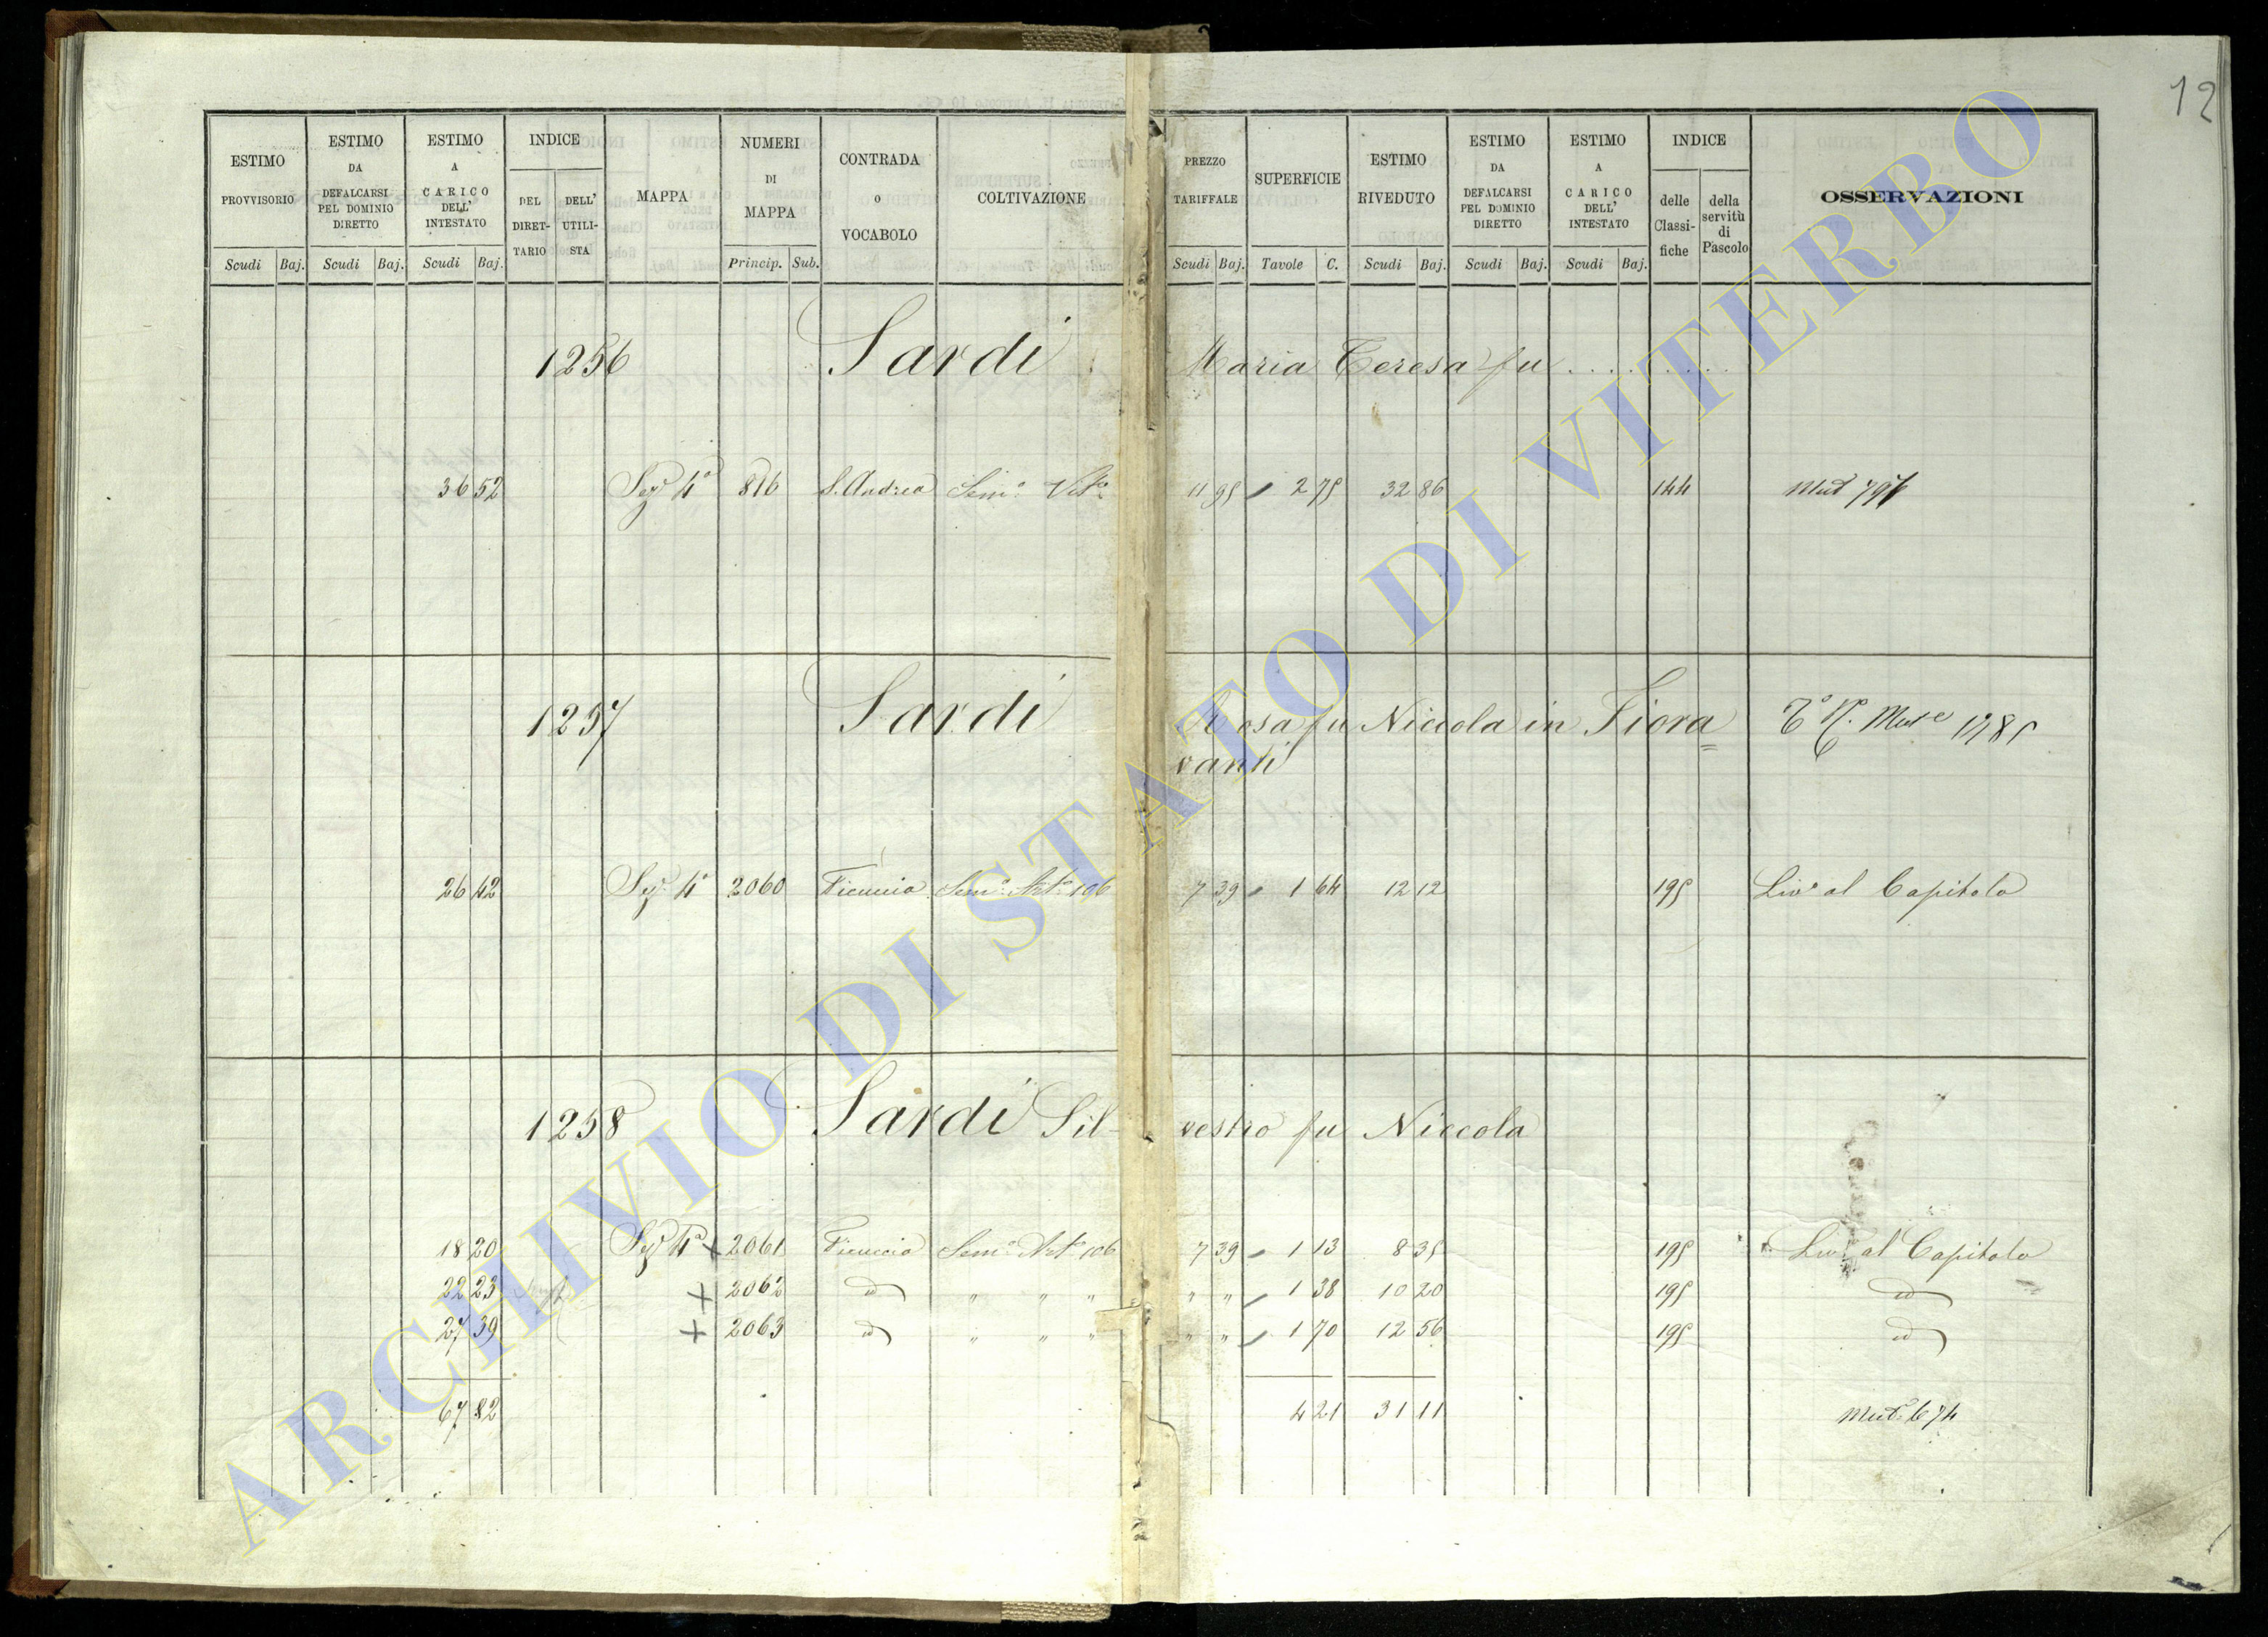 12
ESTIMO PROVVISORIO
ESTIMO DA DEFALCARSI PEL DOMINIO DIRETTO
ESTIMO A CARICO DELL' INTESTATO
INDICE
DEL DIRETTARIO
DELL' UTILISTA
MAPPA
NUMERI DI MAPPA
CONTRADA O VOCABOLO
COLTIVAZIONE
PREZZO TARIFFALE
SUPERFICIE
ESTIMO RIVEDUTO
ESTIMO DA DEFALCARSI PEL DOMINIO DIRETTO
ESTIMO A CARICO DELL' INTESTATO
INDICE
delle Classifiche
della servitù di Pascolo
OSSERVAZIONI
Scudi Baj. Scudi Baj. Scudi Baj. Princip. Sub. Scudi Baj. Tavole C. Scudi Baj. Scudi Baj. Scudi Baj.
1256 Sardi Maria Teresa fu . . . . . . . . .
36 52 Sez. 4ª 816 S. Andrea Sem.º Vit.º 11 95 2 75 32 86 144 Mut 797
1257 Sardi Rosa fu Niccola in Fiora
vanti
26 42 Sez. 4ª 2060 Ficuccia Sem.º Art.º 106 7 39 1 64 12 12 195 Liv.º al Capitolo
1258 Sardi Sil- vestro fu Niccola
18 20 Sez. 4ª + 2061 Ficuccia Sem.º Art.º 106 7 39 1 13 8 35 195 Liv.º al Capitolo
22 23 + 2062 id " " " " " 1 38 10 20 195 id
27 39 + 2063 id " " " " " 1 70 12 56 195 id
67 82 4 21 31 11 Mut. 674
ARCHIVIO DI STATO DI VITERBO